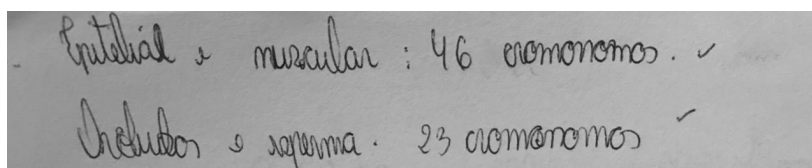 Epitelial e muscular : 46 cromonomos. ✓
e esperma. 23 cromonomos ✓